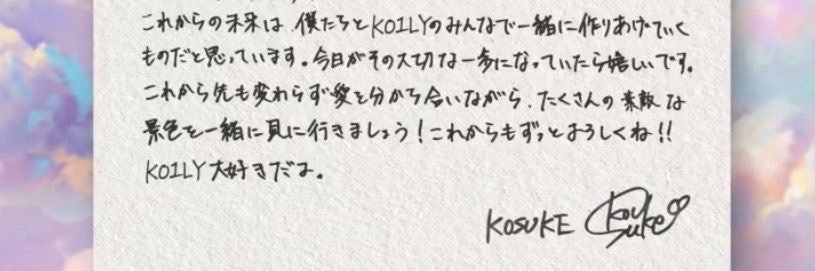 これからの未来は、僕たちとKO1LYのみんなで一緒に作りあげていく
ものだと思っています。今日がその大切な一歩になっていたら嬉しいです。
これから先も変わらず愛を分かち合いながら、たくさんの素敵な
景色を一緒に見に行きましょう！これからもずっとよろしくね!!
KO1LY大好きだよ。
KOSUKE Kousuke